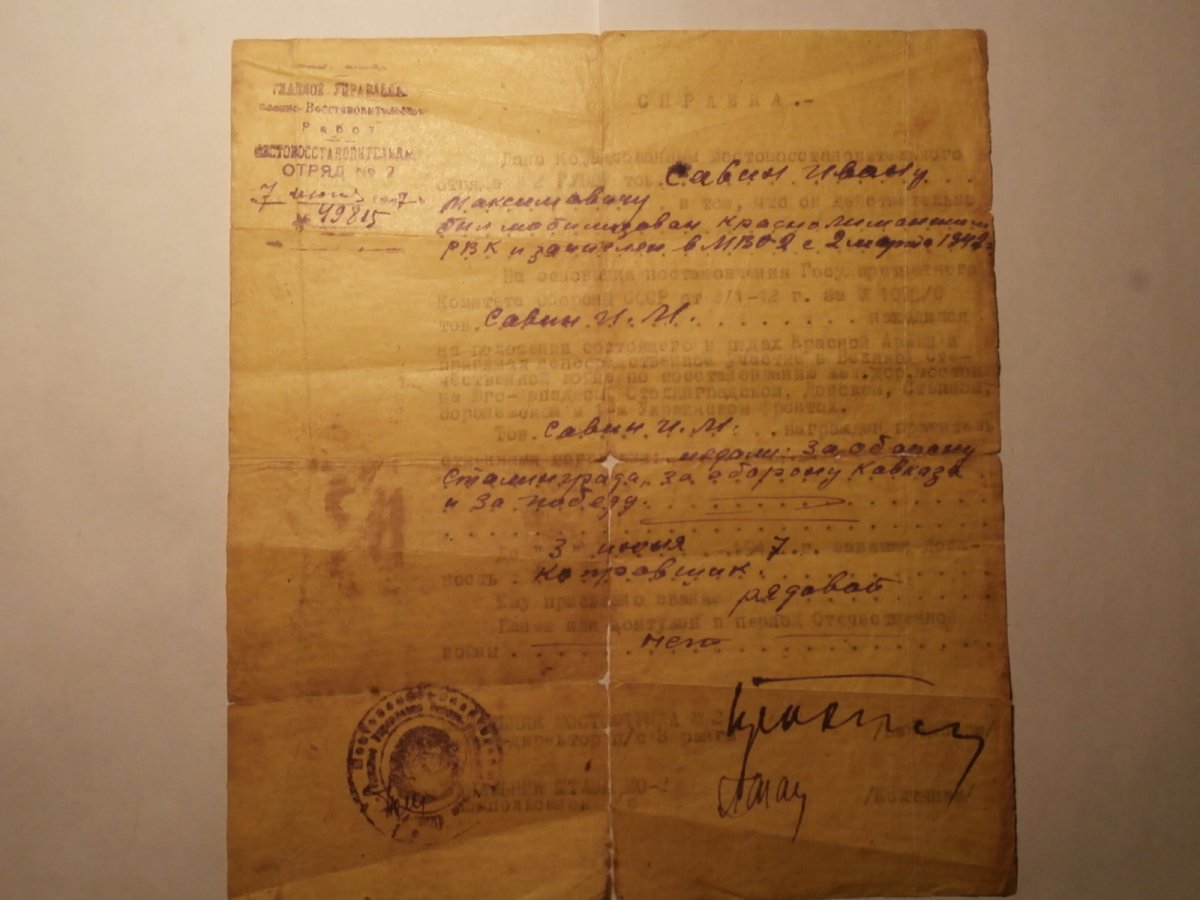 ГЛАВНОЕ УПРАВЛЕН.
Военно-Восстановительных
Работ
МОСТОВОССТАНОВИТЕЛЬН.
ОТРЯД № 2
7 июня 1947
№ 49815
СПРАВКА.-
Дана командованием мостовосстановительного
отряда № 2 тов. Савин Ивану
Максимовичу в том, что он действительно
был мобилизован Краснолиманским
РВК и зачислен в МВО-2 с 2 марта 1942г
На основании постановления Государственного
Комитета Обороны СССР от 3/1-42 г. за №
тов. Савин И.М. находился
на положении состоящего в рядах Красной Армии и
принимал непосредственное участие в Великой Оте-
чественной войне по восстановлению жел.дор.мостов
на Юго-Западном, Сталинградском, Донском, Степном,
Воронежском и Украинском фронтах.
Тов. Савин И.М. награжден правитель
ственными медали: За оборону
Сталинграда, за оборону Кавказа
и за победу
До 3 июня 1947 г. занимал долж-
ность копровщик.
Ему присвоено звание рядовой
Ранен или контужен в период Отечественной
войны нет